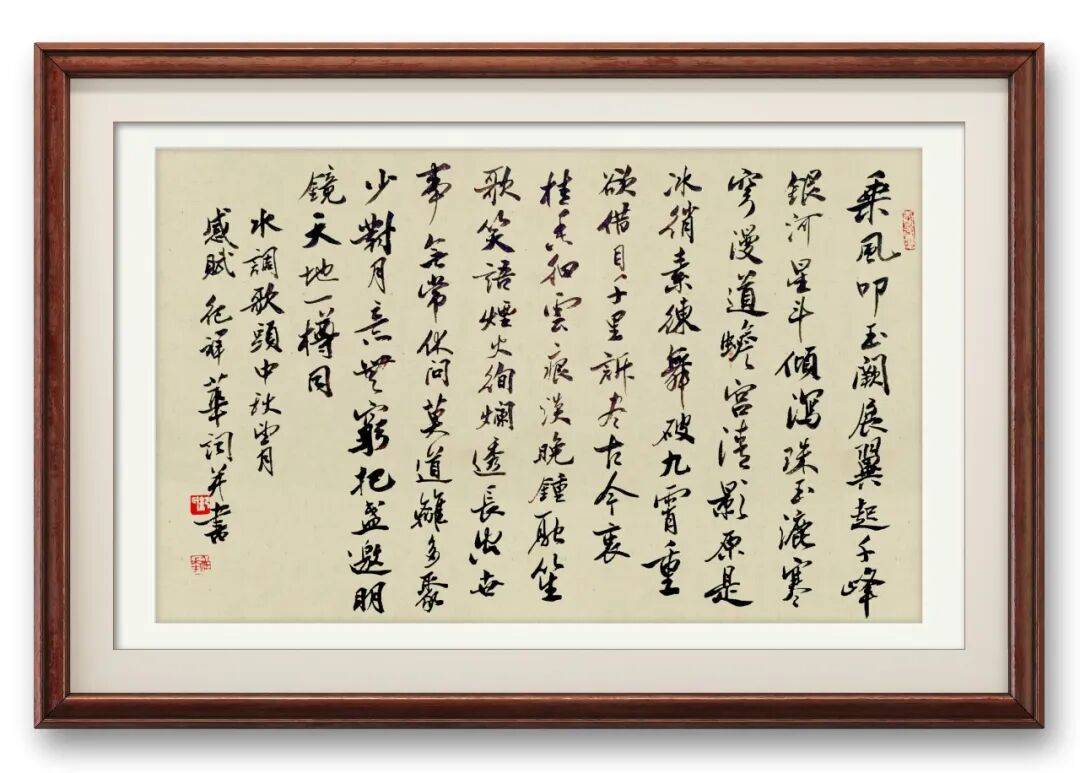 乘風叩玉阙展翼起千峰
銀河星斗傾瀉珠玉漉寒
穹漫道蟾宫清影原是
冰綃素練舞破九霄重
欲借目千里訴尽古今衷
桂香細雲痕淡晚鍾融笙
歌笑語煙火絢爛透長空世
事無常休问莫道離多聚
少對月意無窮把盏邀明
鏡天地一樽同
水調歌頭中秋望月
感賦 祥華詞并書